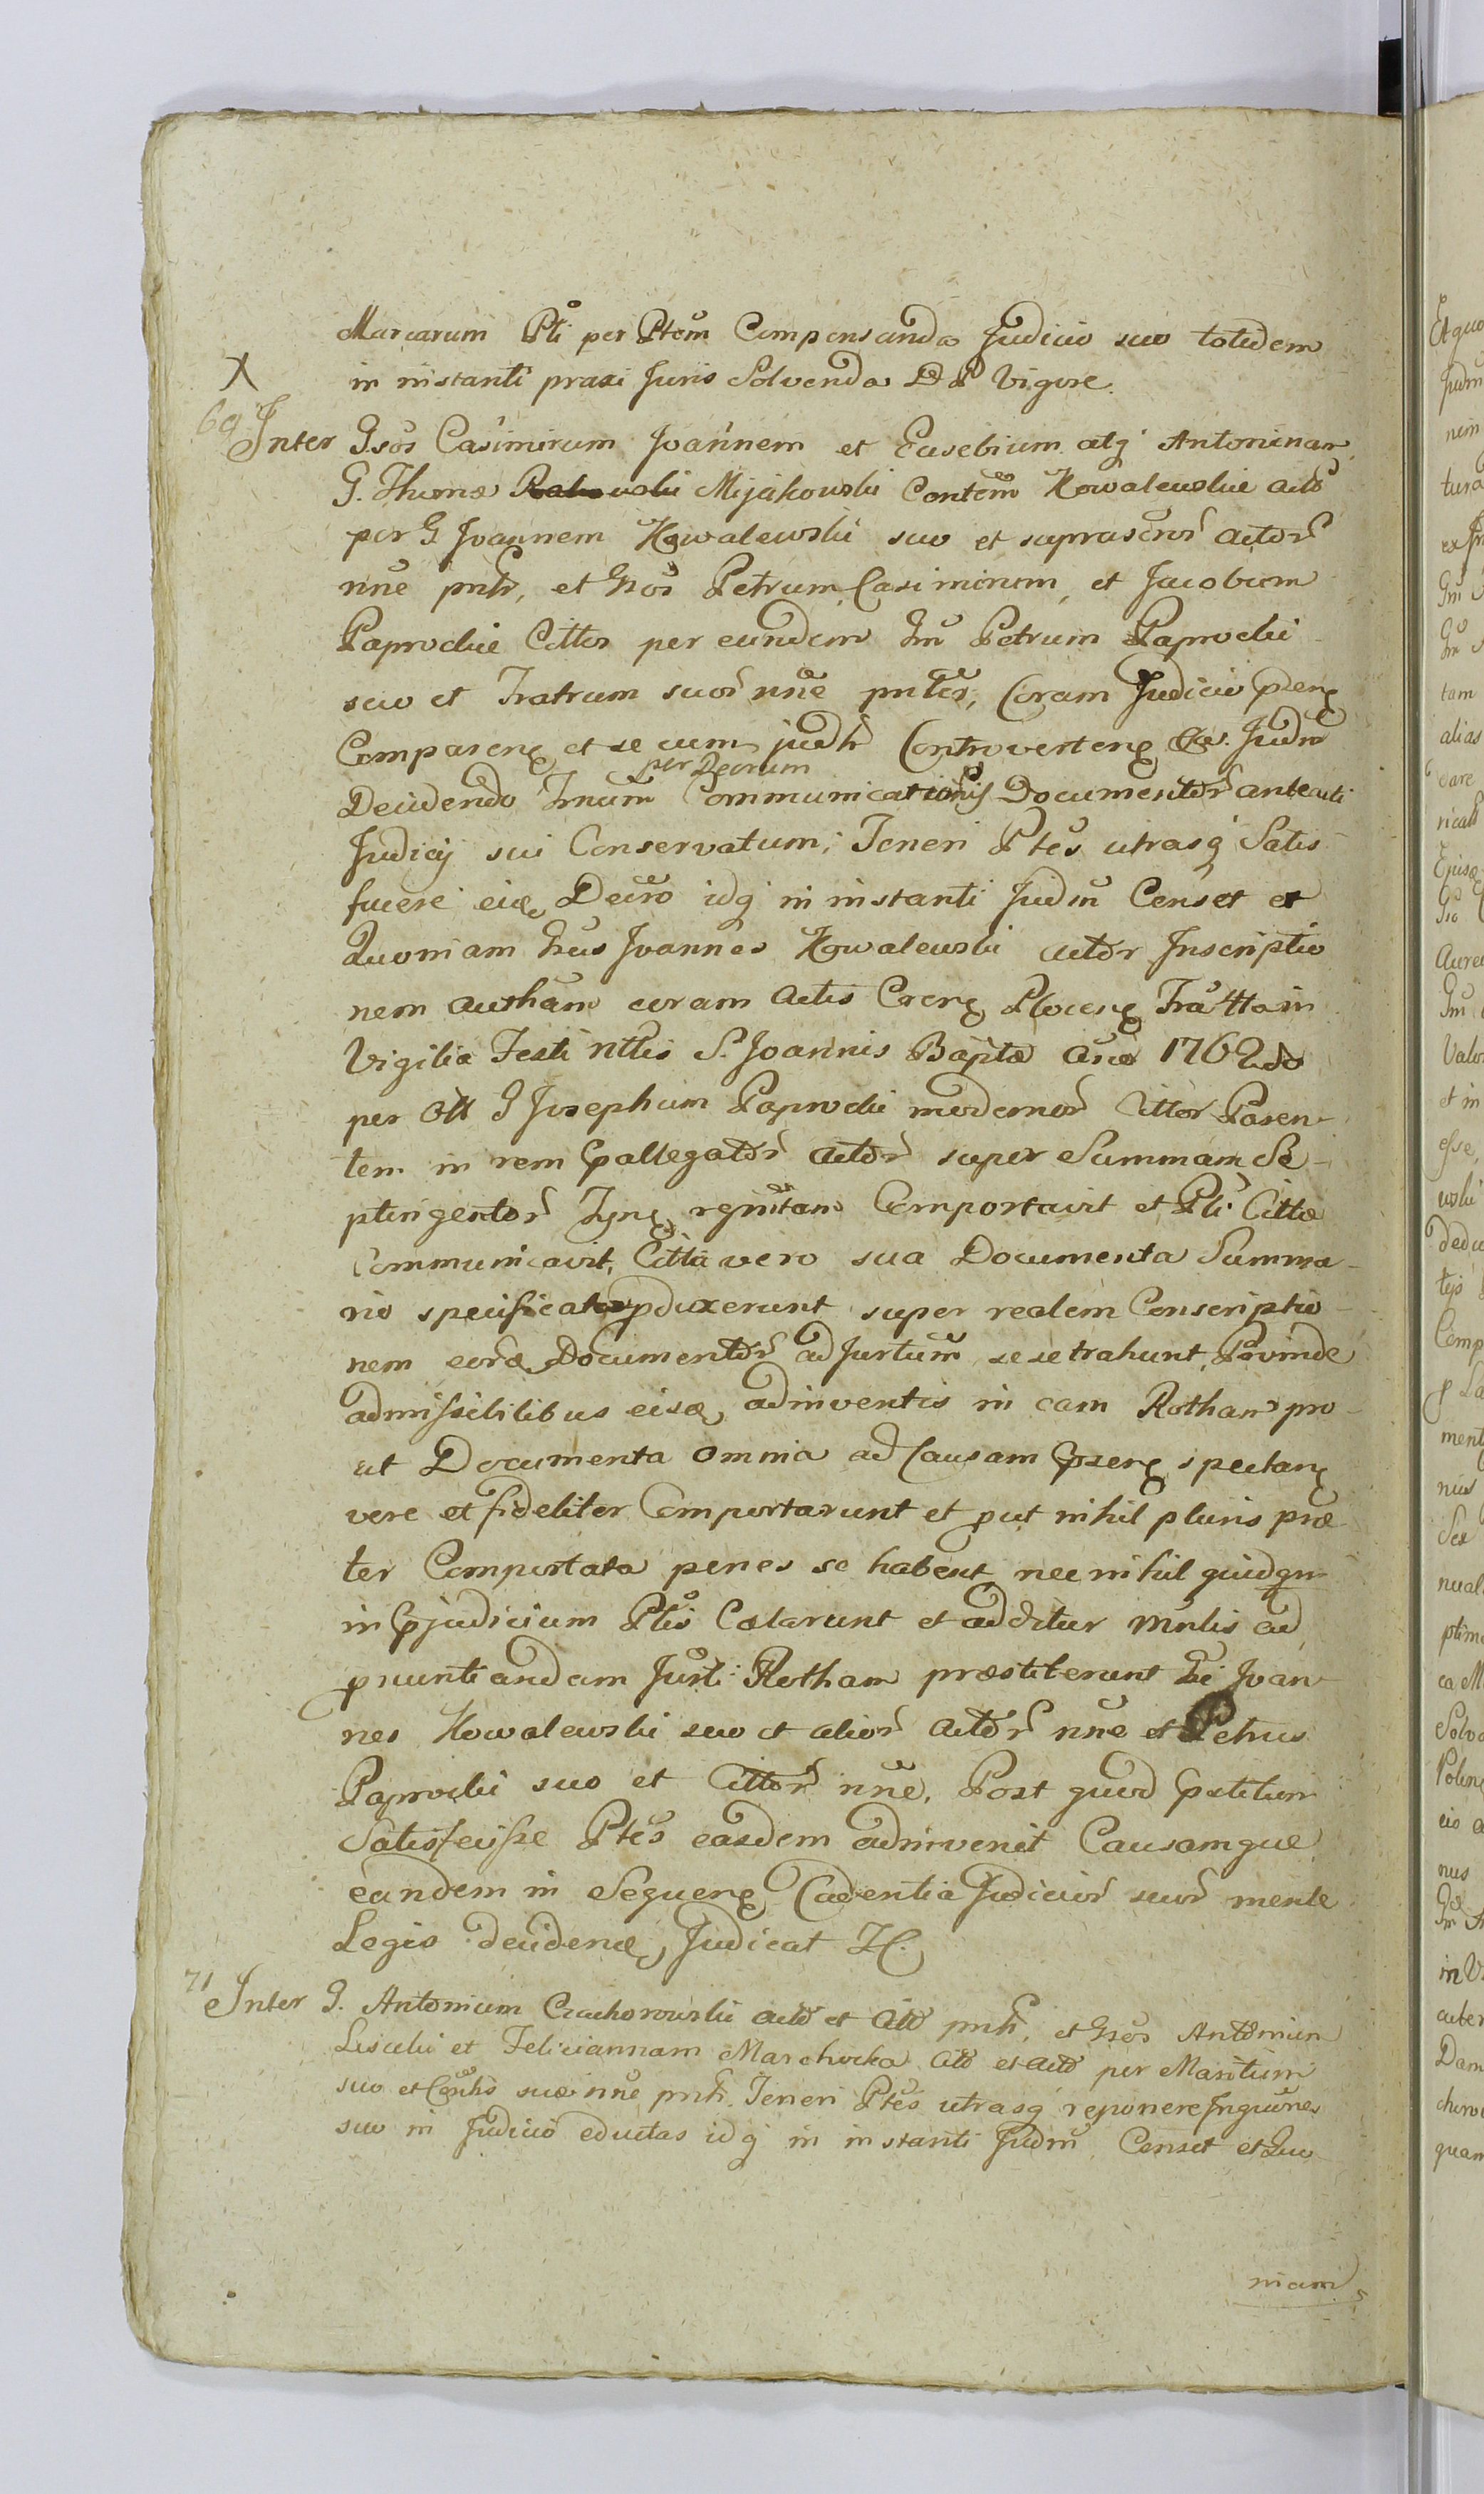 Marcarum Pti per Ptem Compensanda Judicio suo totidem
in instanti praxi Juris Solvenda Dd Vigore.
X
69 Inter Gsos Casimirum Joannem et Eusebium atq Antoninam
G. Thomæ Rakowski Mijakowski Contem Kowalewskie acto
per G Joannem Kowalewski suo et suprascror actor
nne pntr, et Gsos Petrum, Casimirum, et Jacobum
Paprockie Cittos per eundem Gm Petrum Paprocki
suo et Fratrum suor nne pntes, Coram Judicio pseng
Compareng et se cum judr Controverteng &c. Judm
per Decrum
Decidendo Tmum Communicationis Documentor anteacti
Judicij sui Conservatum; Teneri Ptes utrasq Satis
facere eidę Decro idq in instanti Judm Censet et
Quoniam Gsus Joannes Kowalewski actor Inscriptio
nem autham coram Actis Crcng Ploceng Fra 4ta in
Vigilia Festi nttis S. Joannis Baptæ Ano 1762do
per Olt G Josephum Paprocki modernor Cittor Paren-
tem in rem pallegator actor super Summam Se-
ptingentor Tyng rgnitam Comportavit et Pti Cittæ
Communicavit, Citta vero sua Documenta Summa-
rio specificata pduxerunt super realem Conscriptio-
nem eorde Documentor ad Jurtum sese trahunt, Proinde
admissibilibus eisdę adinventis in eam Rotham pro-
ut Documenta omnia ad Causam pseng spectang
vere et fideliter Comportarunt et put nihil pluris præ-
ter Comportata penes se habent nec nihil quidqm
in pjudicium Ptis Cælarunt et additur Mnlis ad
pnuntiandam Jurti Rotham præstiterunt Gi Joan-
nes Kowalewski suo et alior actor nne et Petrus
Paprocki suo et Cittor nne. Post quod pstitum
Satisfecisse Ptes easdem adinvenit Causamque
eandem in Sequeng Cadentia Judicior suor mente
Legis decidendę Judicat H.
71 Inter G. Antonium Czachorowski acto et Citto pntr, et Gsos Antonium
Lisicki et Feliciannam Marchocka Citto et acto per Maritum
suo et Conthis suæ nne pntr. Teneri Ptes utrasq reponere Inqunes
suo in Judicio eductas idq in instanti Judm Censet et Quo
niam